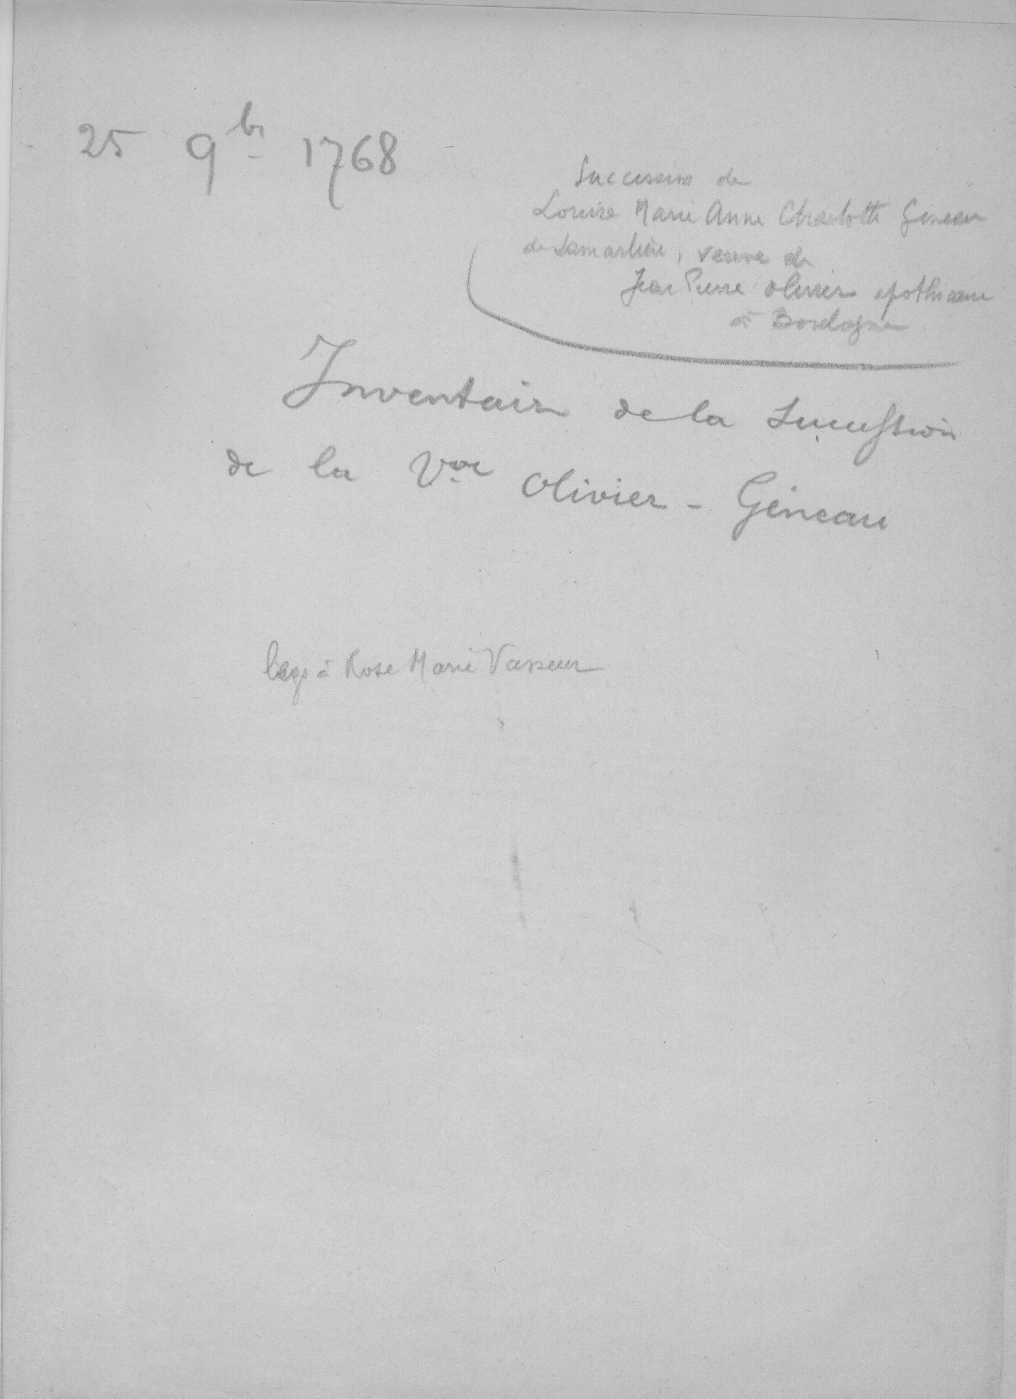 25 9br 1768
Succession de
Louise Marie Anne Charlotte Geneau
de Lamarlière, veuve de
Jean Pierre Olivier apothicaire
à Boulogne
Inventaire de la Succession
de la Vve Olivier - Géneau
legs à Rose Marie Vasseur